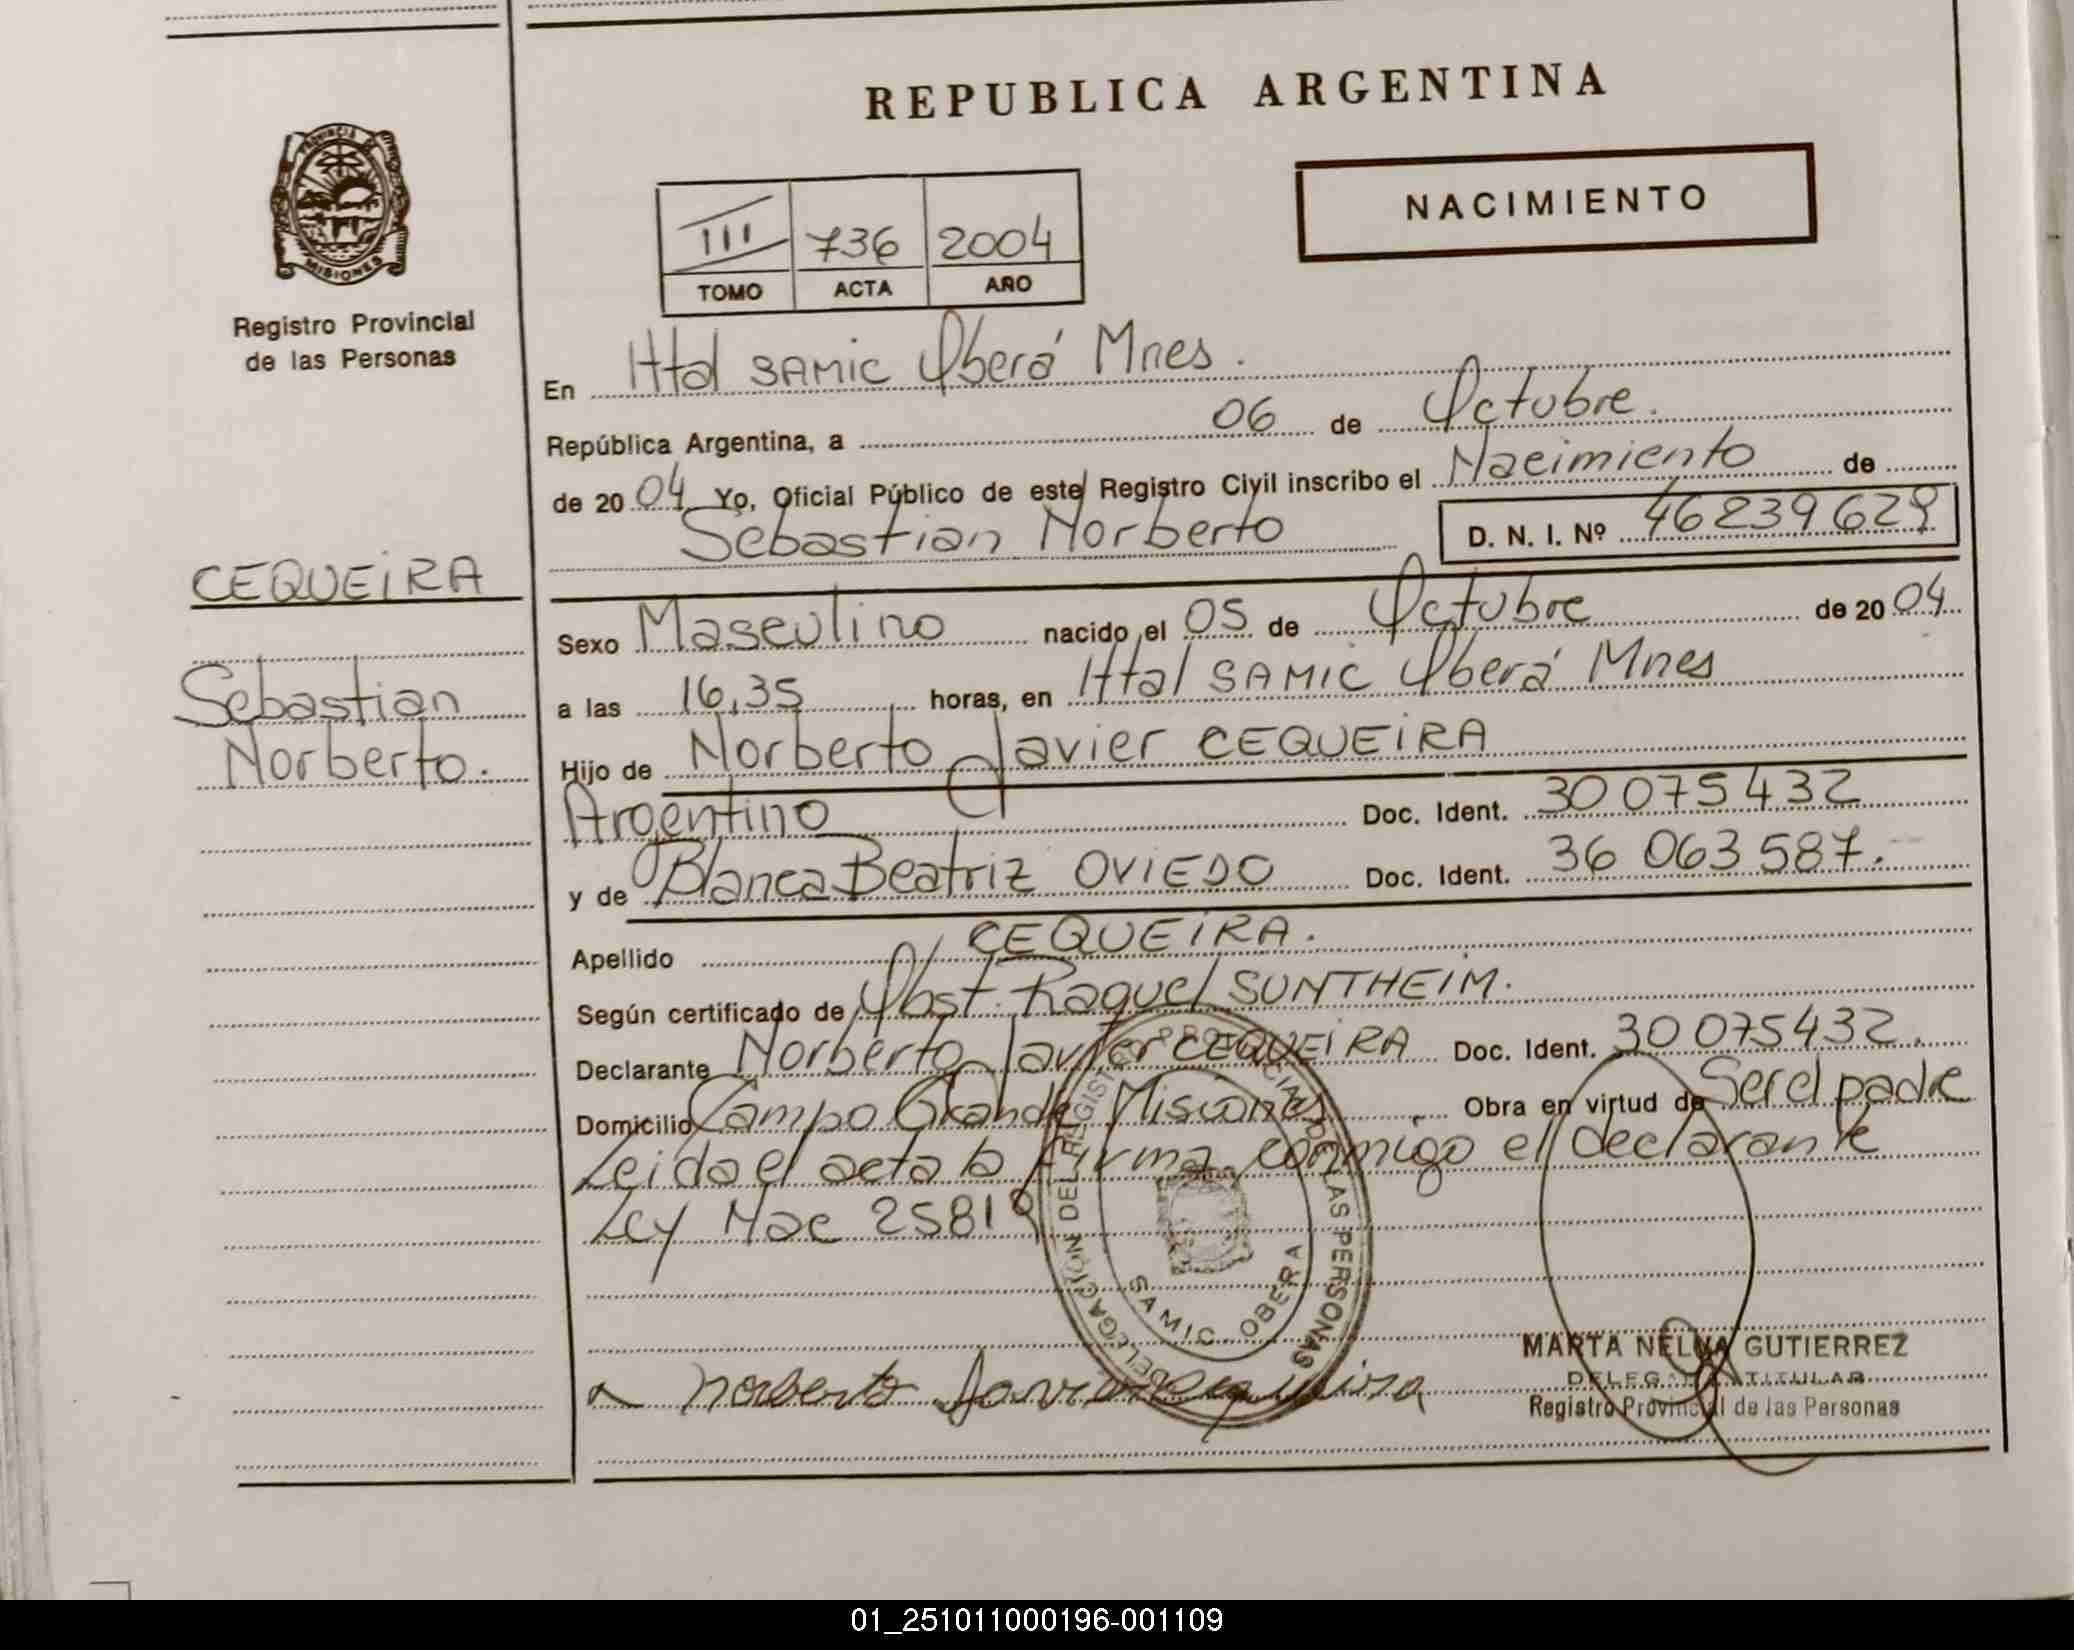 REPUBLICA ARGENTINA
NACIMIENTO
PROVINCIA DE
MISIONES
Registro Provincial
de las Personas
III 736 2004
TOMO ACTA AÑO
En Htal SAMIC Oberá Mnes.
República Argentina, a 06 de Octubre.
de 2004 Yo, Oficial Público de este Registro Civil inscribo el Nacimiento de
Sebastian Norberto D. N. I. Nº 46239629
CEQUEIRA
Sebastian
Norberto.
Sexo Masculino nacido el 05 de Octubre de 2004
a las 16,35 horas, en Htal SAMIC Oberá Mnes
Hijo de Norberto Javier CEQUEIRA
Argentino Doc. Ident. 30 075 432
y de Blanca Beatriz OVIEDO Doc. Ident. 36 063 587.
Apellido CEQUEIRA.
Según certificado de Obst. Raquel SUNTHEIM.
Declarante Norberto Javier CEQUEIRA Doc. Ident. 30 075 432.
Domicilio Campo Grande Misiones Obra en virtud de Ser el padre
Leida el acta la firma conmigo el declarante
Ley Nac 25819
DELEGACION DEL REGISTRO PROVINCIAL DE LAS PERSONAS
SAMIC - OBERA
Norberto Javier Cequeira
MARTA NELVA GUTIERREZ
DELEGADA TITULAR
Registro Provincial de las Personas
01_251011000196-001109